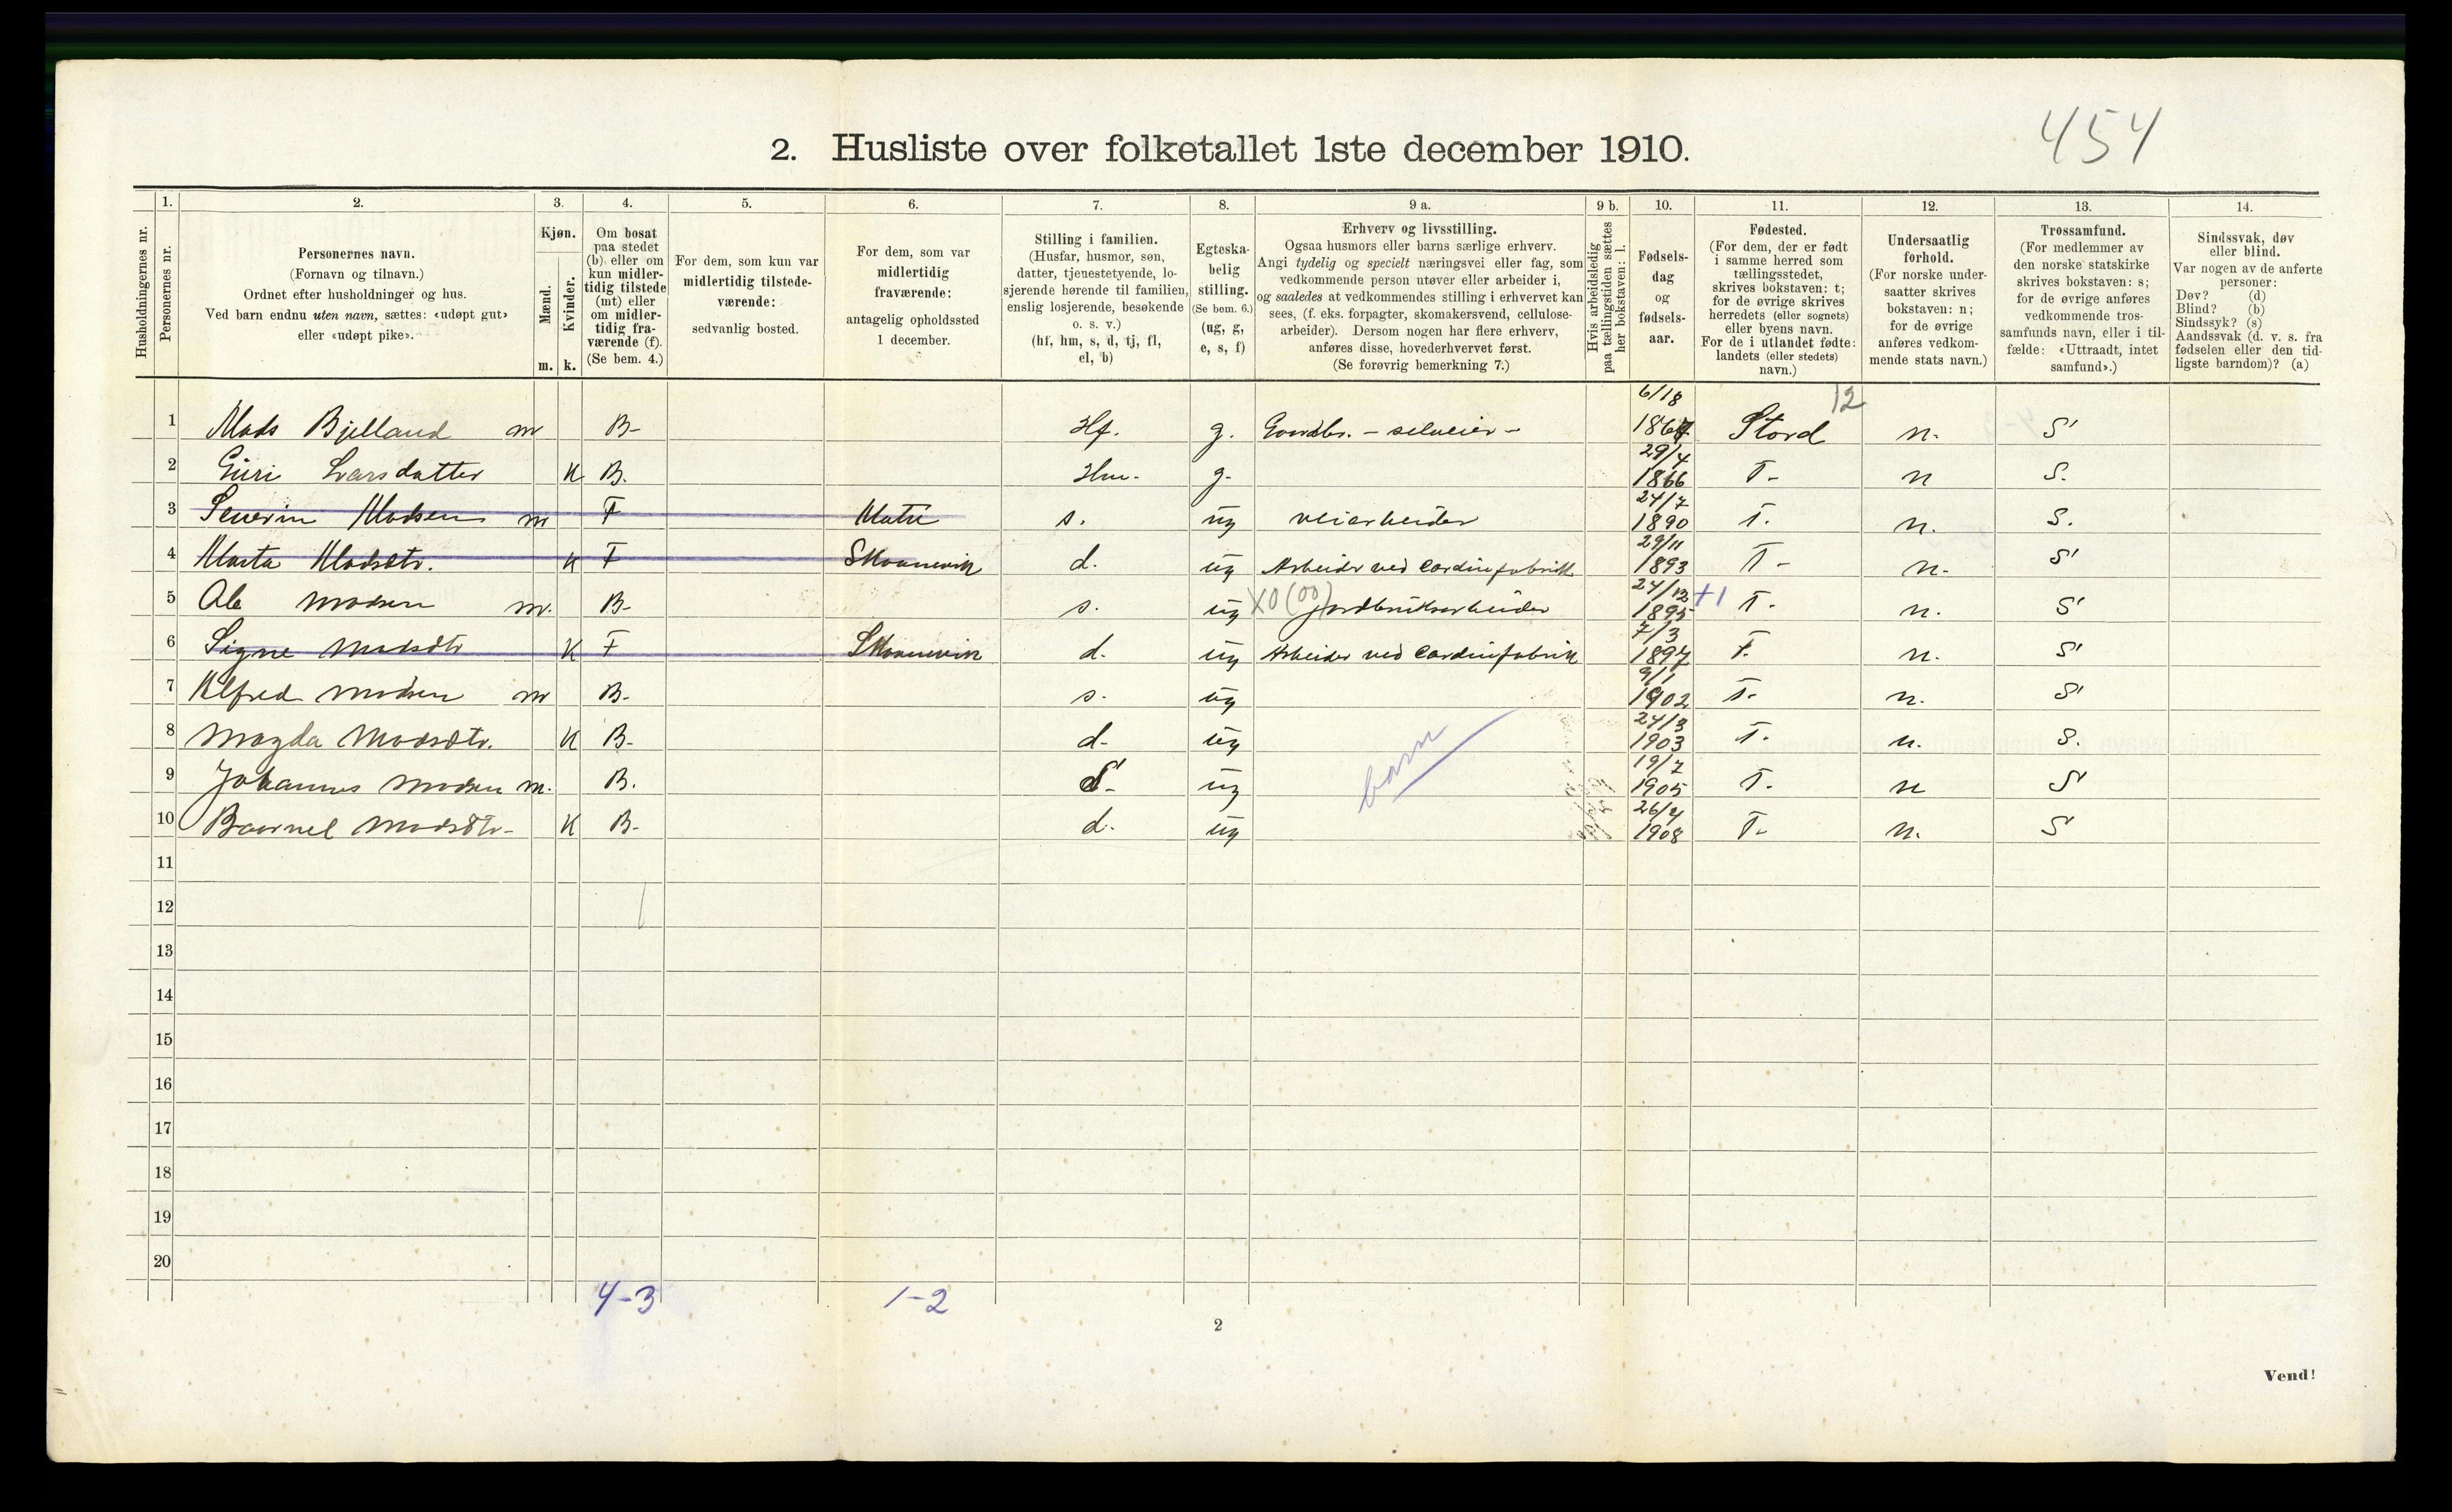 454
2. Husliste over folketallet 1ste december 1910.
Husholdningernes nr.
1. Personernes nr.
2. Personernes navn. (Fornavn og tilnavn.) Ordnet efter husholdninger og hus. Ved barn endnu uten navn, sættes: «udøpt gut» eller «udøpt pike».
3. Kjøn. Mænd. m. Kvinder. k.
4. Om bosat paa stedet (b) eller om kun midlertidig tilstede (mt) eller om midlertidig fraværende (f). (Se bem. 4.)
5. For dem, som kun var midlertidig tilstedeværende: sedvanlig bosted.
6. For dem, som var midlertidig fraværende: antagelig opholdssted 1 december.
7. Stilling i familien. (Husfar, husmor, søn, datter, tjenestetyende, losjerende hørende til familien, enslig losjerende, besøkende o. s. v.) (hf, hm, s, d, tj, fl, el, b)
8. Egteskabelig stilling. (Se bem. 6.) (ug, g, e, s, f)
9 a. Erhverv og livsstilling. Ogsaa husmors eller barns særlige erhverv. Angi tydelig og specielt næringsvei eller fag, som vedkommende person utøver eller arbeider i, og saaledes at vedkommendes stilling i erhvervet kan sees, (f. eks. forpagter, skomakersvend, cellulosearbeider). Dersom nogen har flere erhverv, anføres disse, hovederhvervet først. (Se forøvrig bemerkning 7.)
9 b. Hvis arbeidsledig paa tællingstiden sættes her bokstaven: l.
10. Fødselsdag og fødselsaar.
11. Fødested. (For dem, der er født i samme herred som tællingsstedet, skrives bokstaven: t; for de øvrige skrives herredets (eller sognets) eller byens navn. For de i utlandet fødte: landets (eller stedets) navn.)
12. Undersaatlig forhold. (For norske undersaatter skrives bokstaven: n; for de øvrige anføres vedkommende stats navn.)
13. Trossamfund. (For medlemmer av den norske statskirke skrives bokstaven: s; for de øvrige anføres vedkommende trossamfunds navn, eller i tilfælde: «Uttraadt, intet samfund».)
14. Sindssvak, døv eller blind. Var nogen av de anførte personer: Døv? (d) Blind? (b) Sindssyk? (s) Aandssvak (d. v. s. fra fødselen eller den tidligste barndom)? (a)
1 Mads Bjelland m B- Hf. g. Gaardbr. - selveier - 6/18 1867 Stord 12 n. S
2 Guri Larsdatter K B. Hm. g. 29/4 1866 T- n S.
3 Severin Madsen m F Matre s. ug veiarbeider 24/7 1890 T. n. S.
4 Marta Madsdtr. K F Skaanevik d. ug Arbeider ved Sardinfabrik 29/11 1893 T- n- S
5 Ole Madsen m. B- s. ug X0(00) Jordbruksarbeider 24/12 1895 +1 T. n. S
6 Signe Madsdtr K F Skaanevik d. ug Arbeider ved Sardinfabrik 7/3 1897 T. n. S
7 Alfred Madsen m B. s. ug 9/1 1902 T- n. S
8 Magda Madsdtr. K B- d- ug 24/3 1903 T. n. S.
9 Johannes Madsen m. B. S- ug barn 19/7 1905 T. n S
10 Baarnel Madsdtr- K B- d. ug 26/4 1908 T- n. S
11
12
13
14
15
16
17
18
19
20
4-3 1-2
2
Vend!